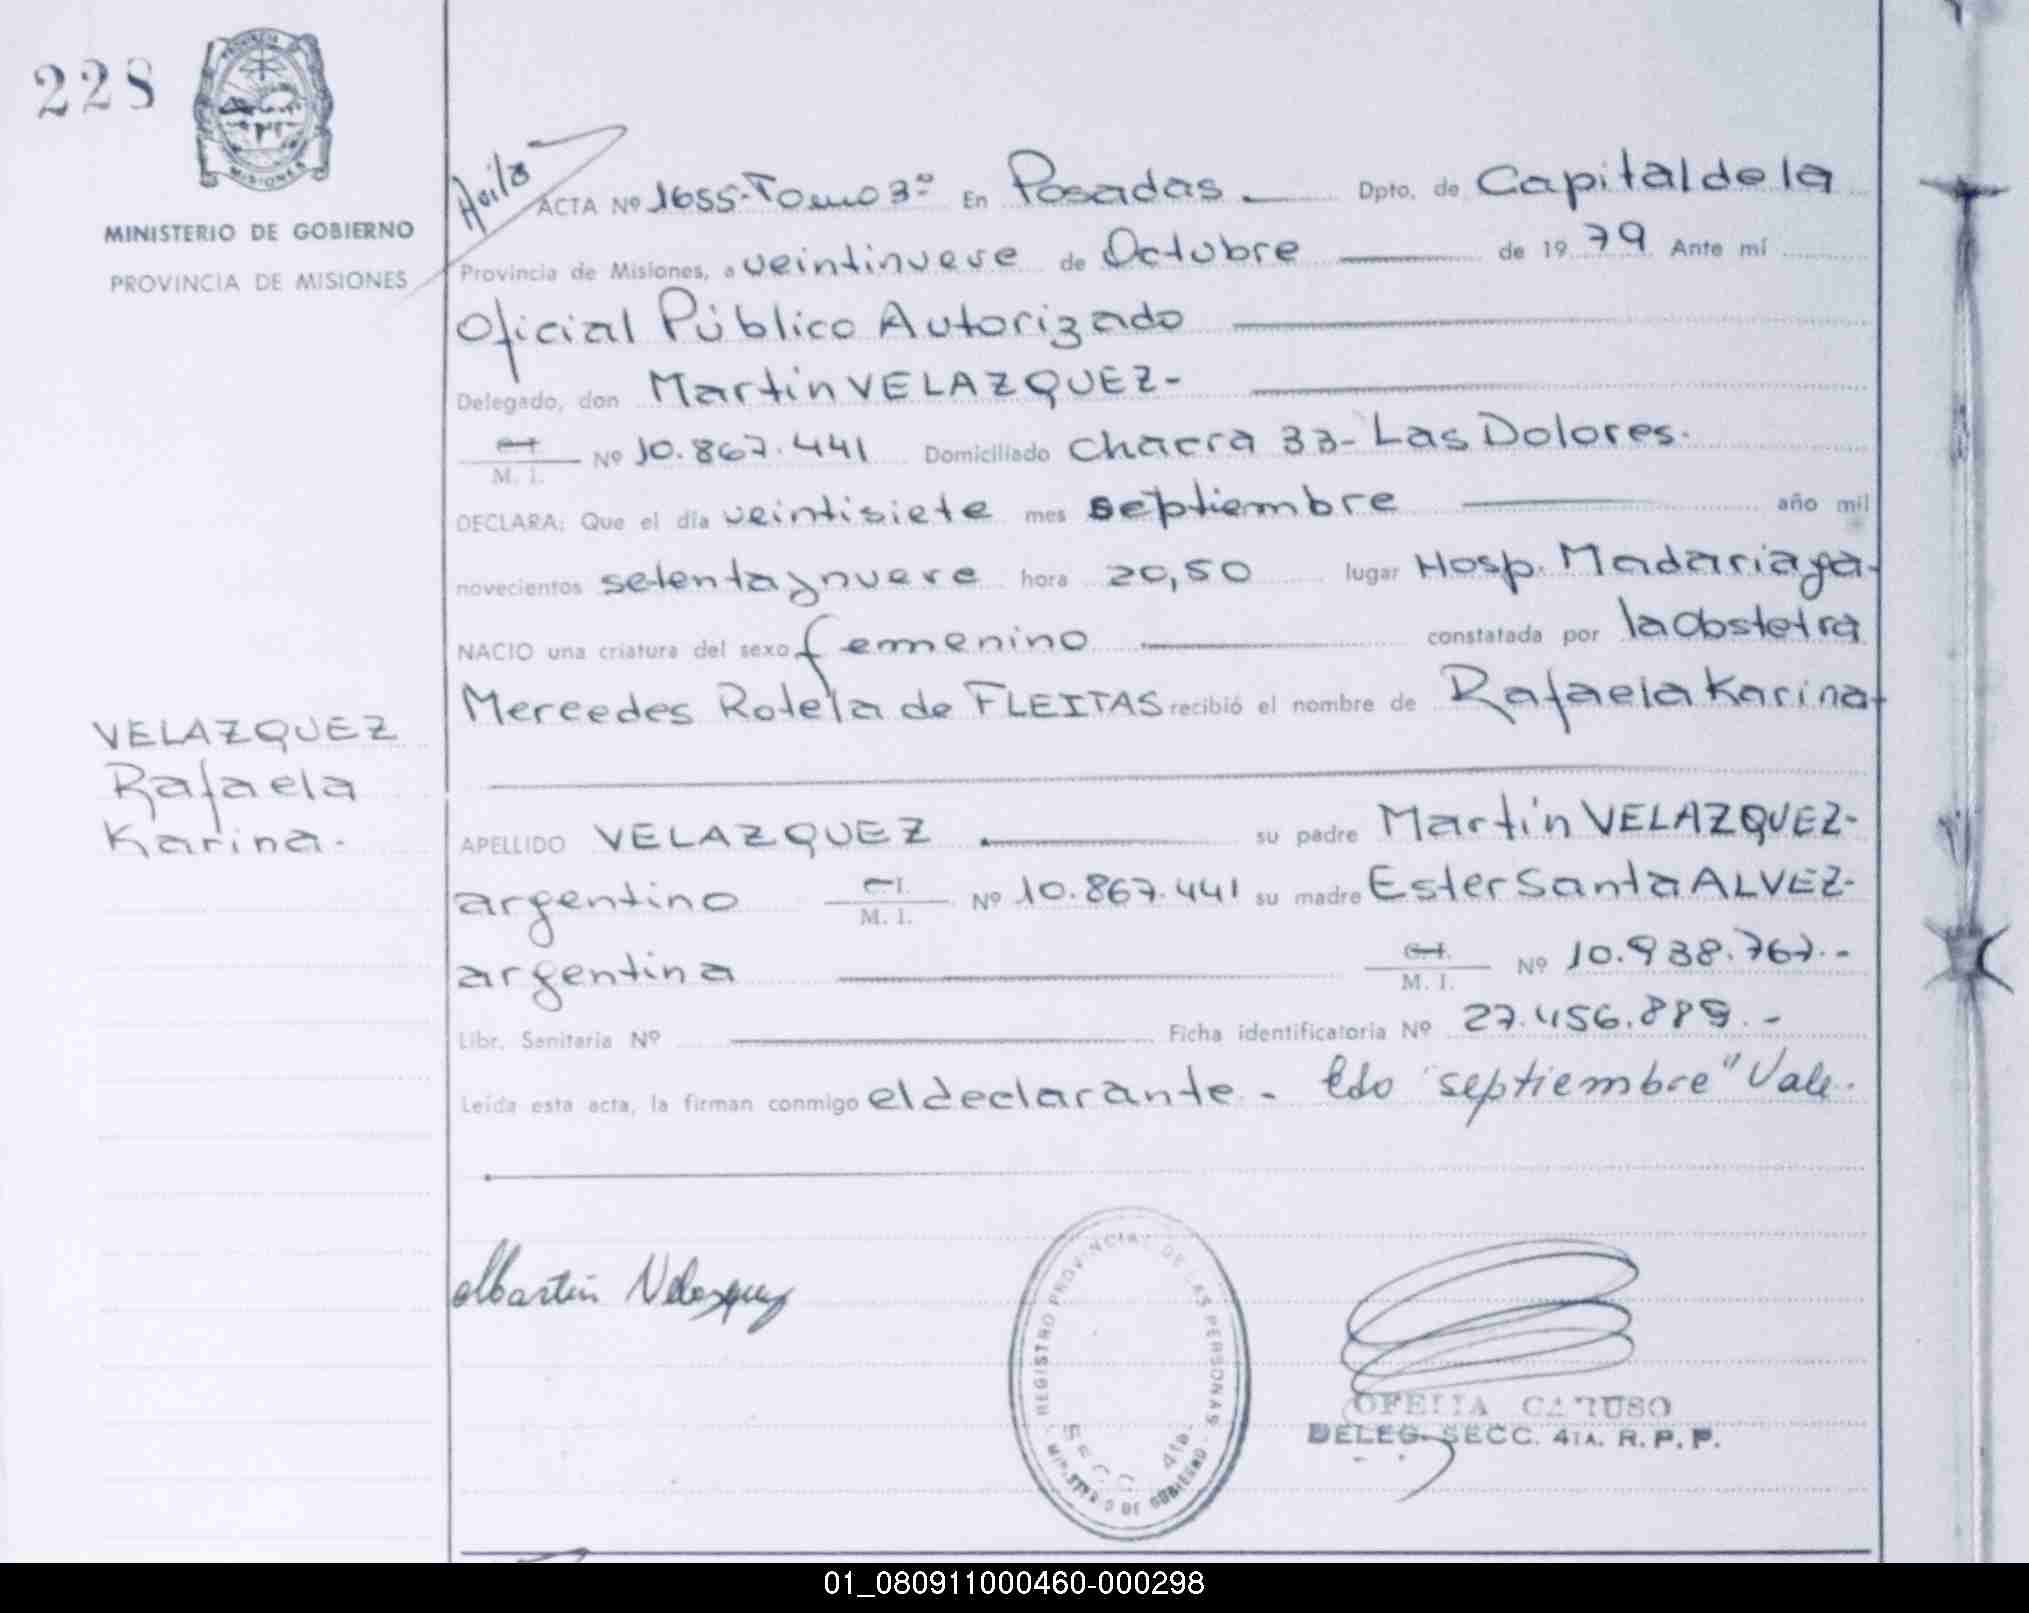 228
PROVINCIA
MISIONES
MINISTERIO DE GOBIERNO
PROVINCIA DE MISIONES
ACTA Nº 1655-Tomo 3º En Posadas Dpto. de Capital de la
Provincia de Misiones, a veintinueve de Octubre de 1979 Ante mí
Oficial Público Autorizado
Delegado, don Martín VELAZQUEZ-
M. I. Nº 10.867.441 Domiciliado Chacra 33- Las Dolores.
DECLARA: Que el día veintisiete mes septiembre año mil
novecientos setenta y nueve hora 20,50 lugar Hosp. Madariaga-
NACIO una criatura del sexo femenino constatada por la Obstetra
Mercedes Rotela de FLEITAS recibió el nombre de Rafaela Karina-
VELAZQUEZ
Rafaela
Karina.
APELLIDO VELAZQUEZ su padre Martín VELAZQUEZ-
argentino C.I. M. I. Nº 10.867.441 su madre Ester Santa ALVEZ-
argentina C.I. M. I. Nº 10.938.767.-
Libr. Sanitaria Nº Ficha identificatoria Nº 27.456.889.-
Leída esta acta, la firman conmigo el declarante.- Edo "septiembre" Vale.
Martín Velazquez
REGISTRO PROVINCIAL DE LAS PERSONAS
SECC 4ta.
MINISTERIO DE GOBIERNO
OFELIA CARUSO
DELEG. SECC. 4TA. R. P. P.
01_080911000460-000298